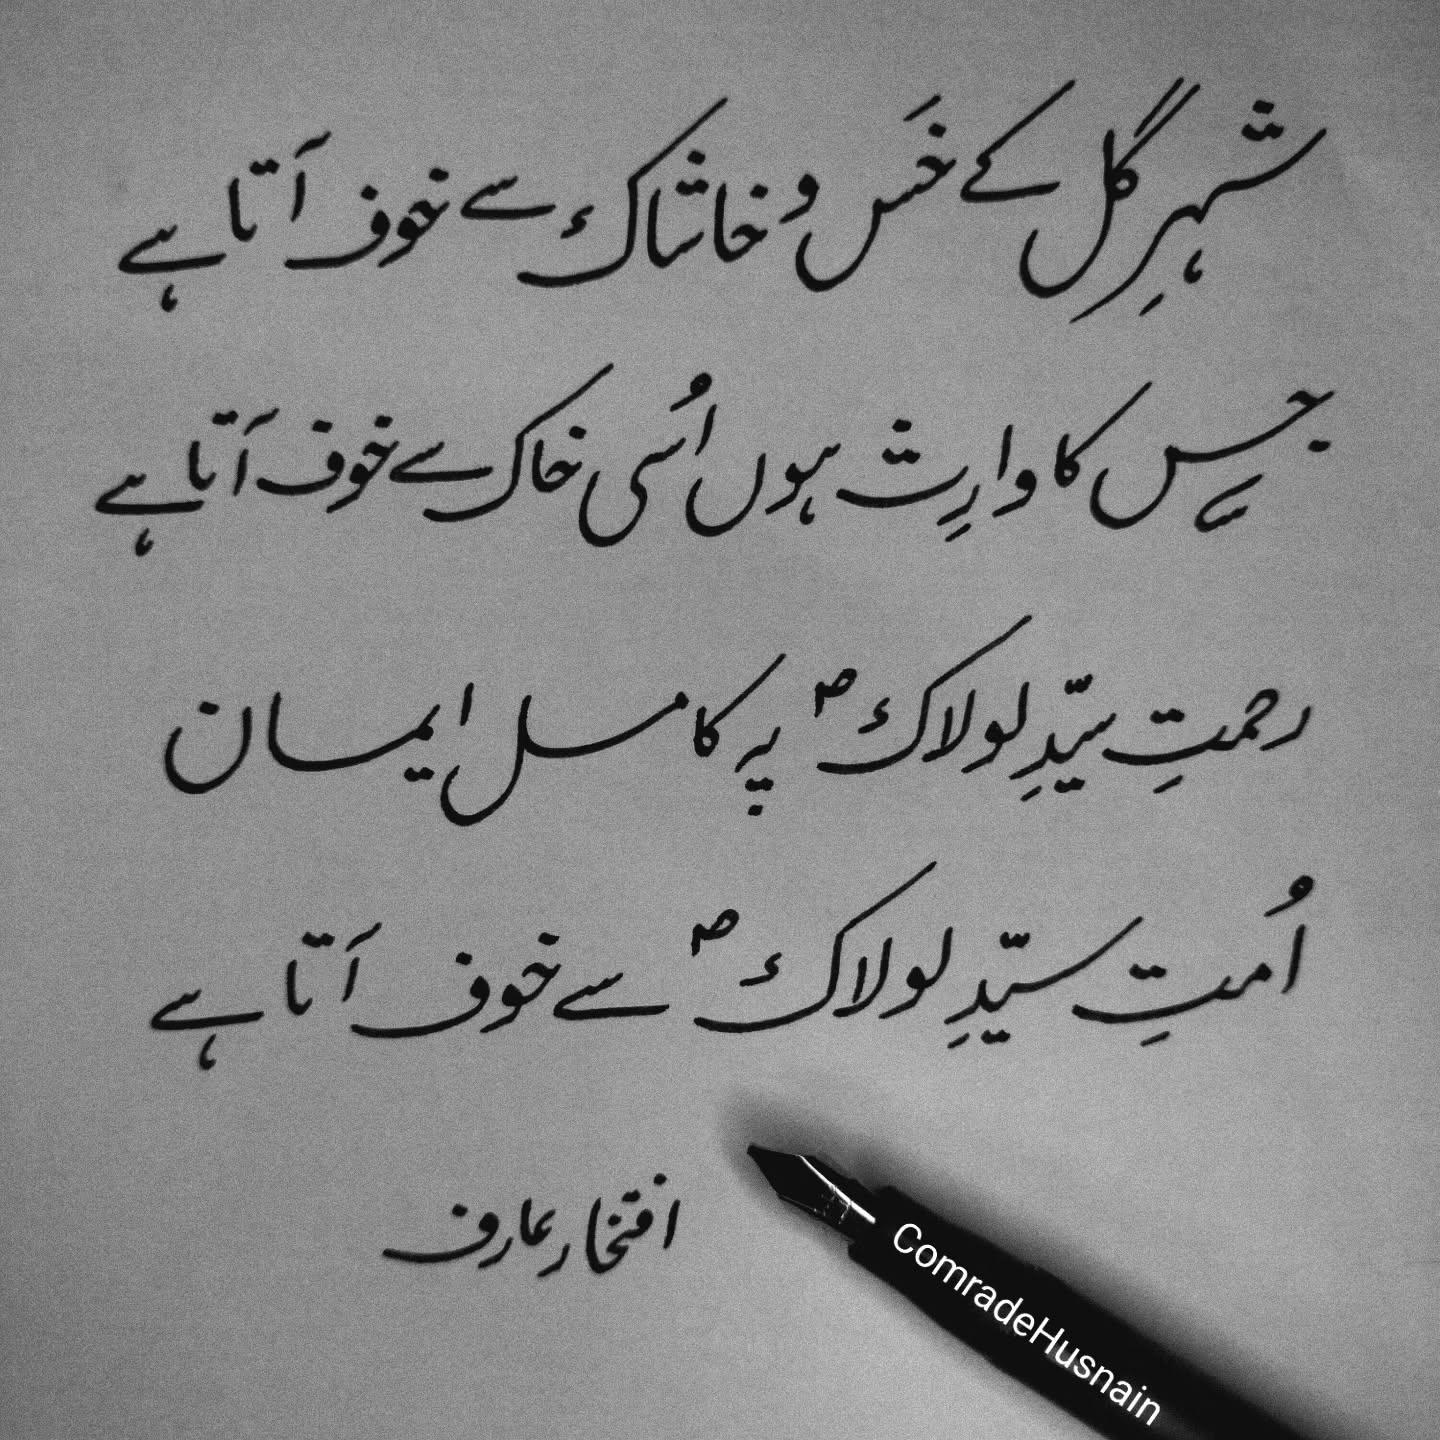 شہرِ گل کے خَس و خاشاک سے خوف آتا ہے
جس کا وارِث ہوں اُسی خاک سے خوف آتا ہے
رحمتِ سیّدِ لولاک ؐ پہ کامل ایمان
اُمتِ سیّدِ لولاک ؐ سے خوف آتا ہے
افتخار عارف
ComradeHusnain